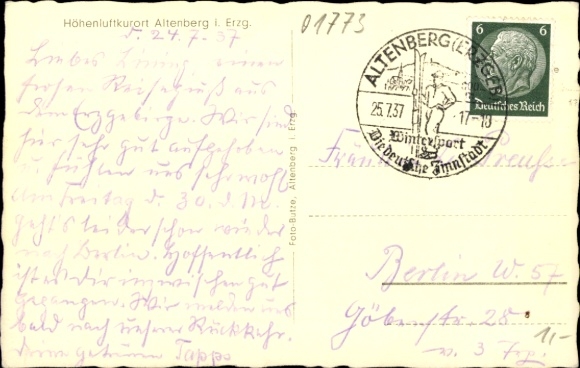 Höhenluftkurort Altenberg i. Erzg.
d. 24.7.37
Liebes einen
frohen Reisegruß aus
dem Erzgebirge. Wir sind
hier sehr gut aufgehoben
u. fühlen uns sehr wohl.
Am Freitag d. 30. d. M.
geht's leider schon wieder
nach Berlin. Hoffentlich
ist es Dir inzwischen gut
gegangen. Wir melden uns
bald nach unserer Rückkehr.
Deine getreuen Tapps
Foto-Butze, Altenberg i. Erzg.
01773
ALTENBERG (ERZGEB)
25.7.37
17-18
Wintersport
Die deutsche
6 6
Deutsches Reich
Preuße
Berlin W. 57
Göbenstr. 28
v. 3 Trp.
1,-